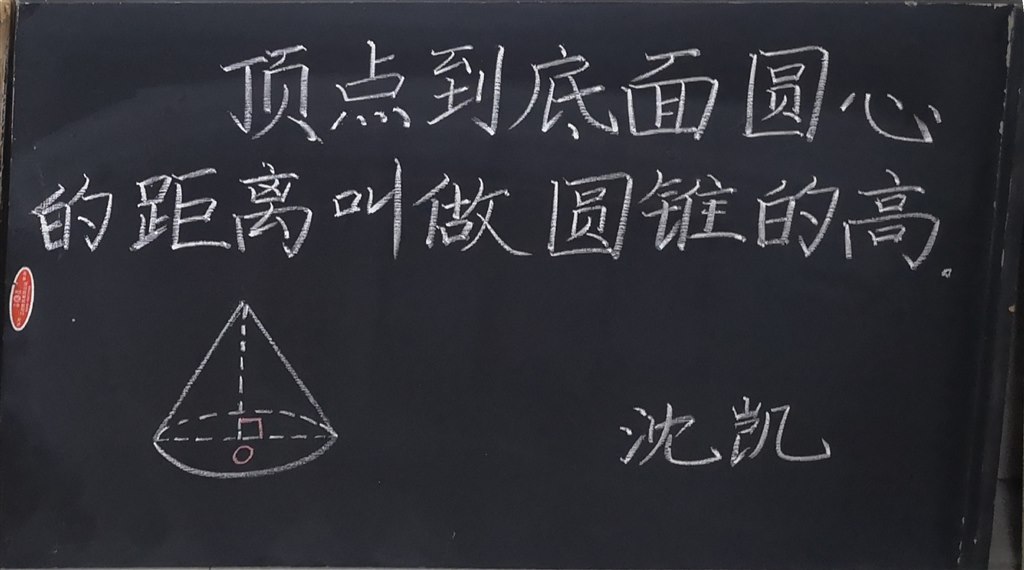 顶点到底面圆心
的距离叫做圆锥的高。
O
沈凯